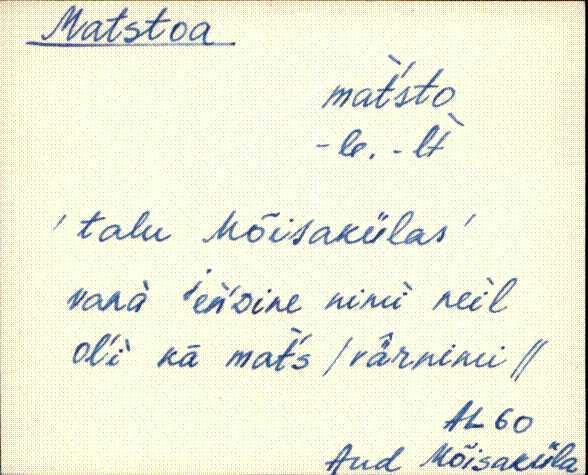 Matstoa
mat̀śto
-le, -lt̀
'talu Mõisakülas'
vanà 'eǹ'zine nimì neìl
ol'ì kā mat̀ś /vâ̄rnimi //
AL 60
Aud Mõisaküla